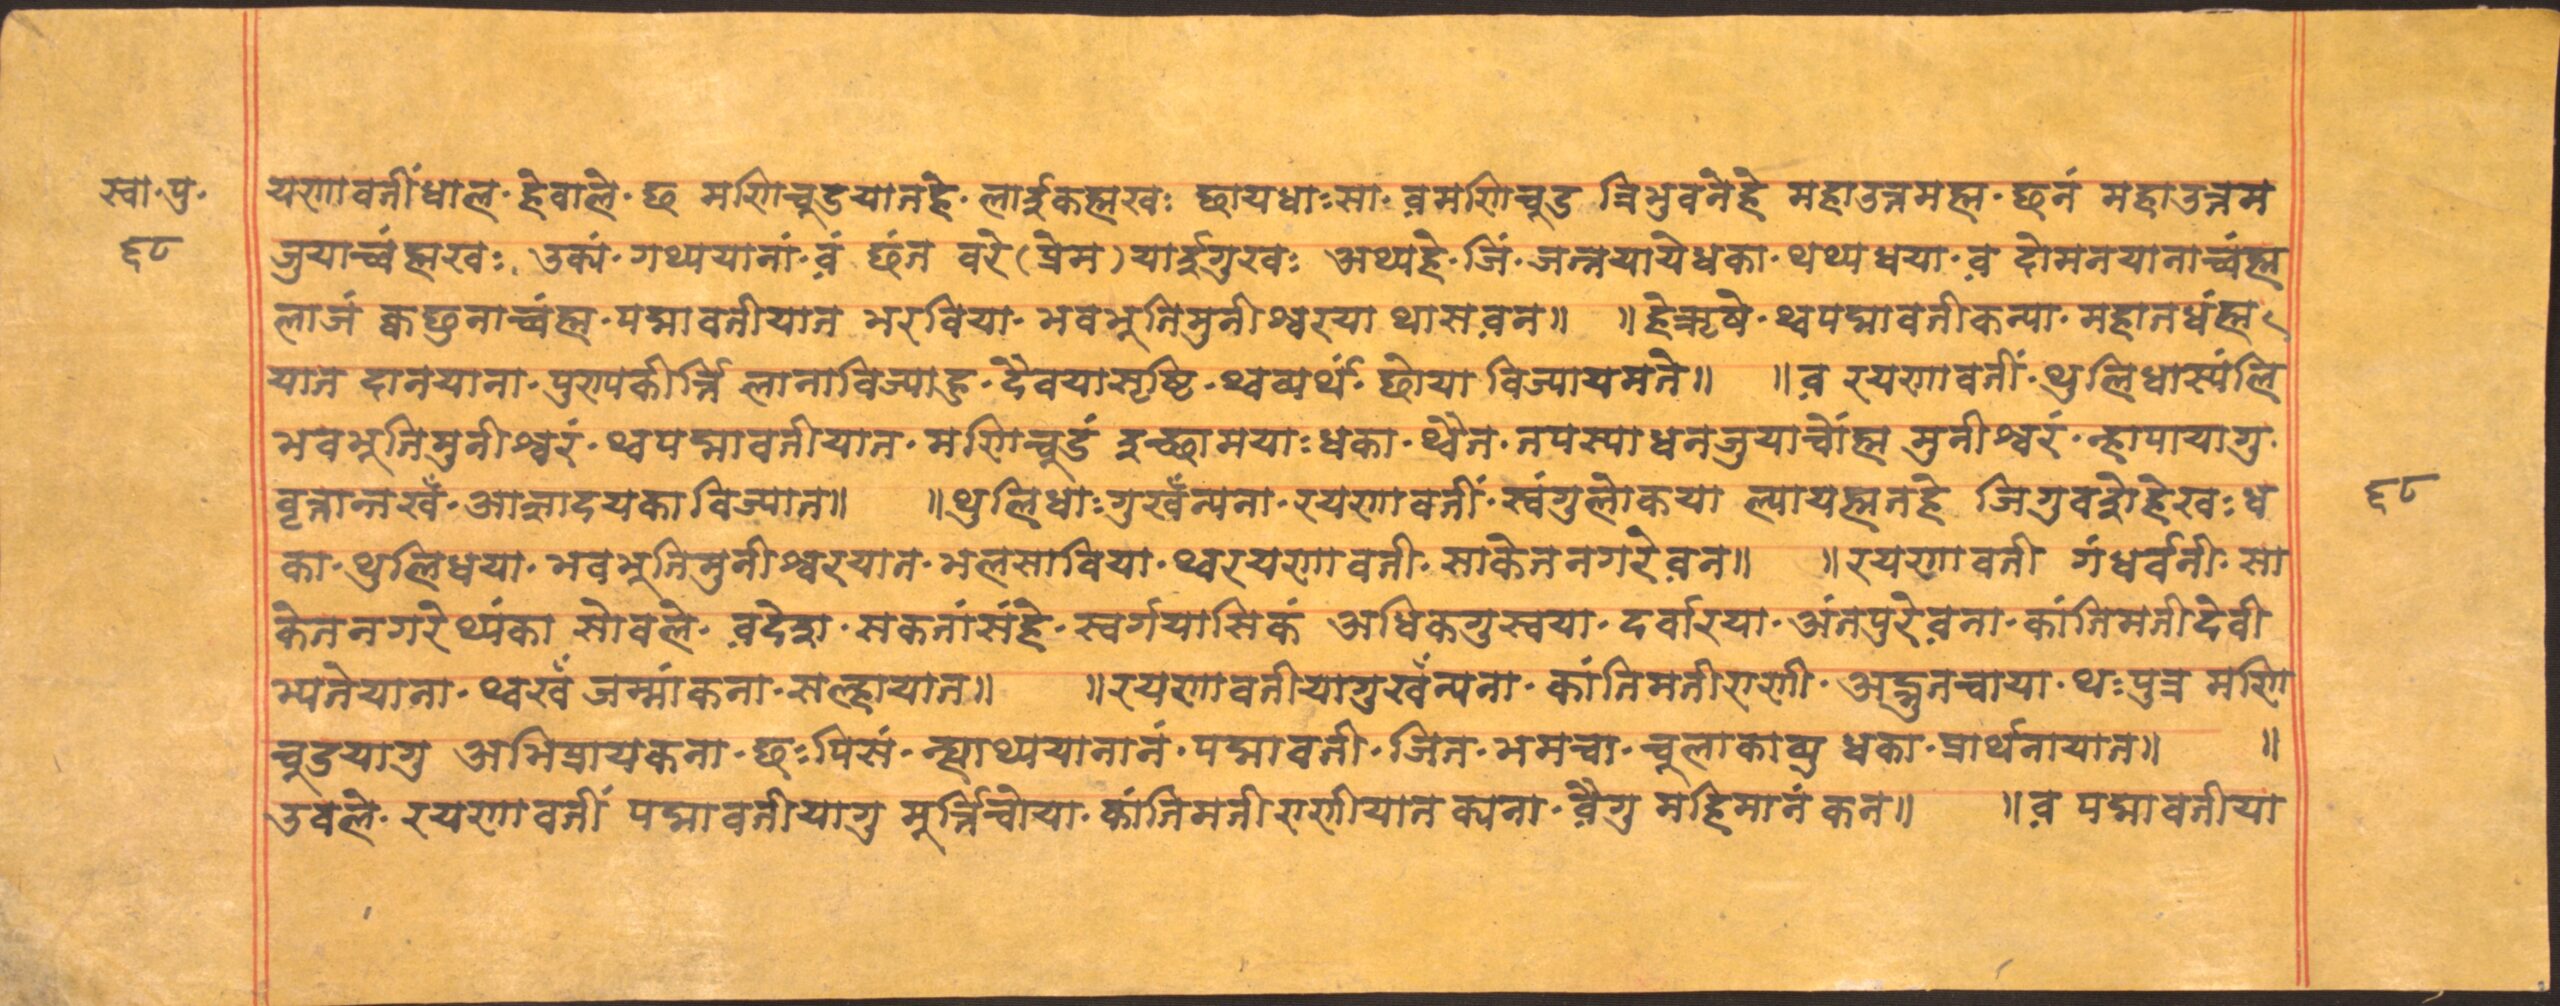 स्वा॰पु॰
६८
यणावतीं धाल॰ हेवाले॰ छ मणिचूडयातहे॰ लाईकह्मखः छायधाःसा॰ व़मणिचूड त्रिभुवनेहे महाउत्तमह्म॰ छनं महाउत्तम
जुयाच्वंह्मखः॰ उक्यं॰ गथ्ययानां॰ व़ं छंत वरे (प्रेम) याईगुखः अथ्यहे॰ जिं॰ जत्नयायेधका॰ थथ्यधया॰ व़ दोमनयानाच्वंह्म
लाजं क्वछुनाच्वंह्म॰ पद्मावतीयात भरविया॰ भवभूतिमुनीश्वरया थासव़न॥ ॥हेऋषे॰ थ्वपद्मावतीकन्या॰ महानधंह्म
यात दानयाना॰ पुरुपकीर्त्ति लानाविज्याहु॰ दैवयासृष्टि॰ थ्वव्यर्थ॰ छोया विज्यायमते॥ ॥व़ रयणावतीं॰ थुलिधास्यंलि
भवभूतिमुनीश्वरं॰ थ्वपद्मावतीयात॰ मणिचूडं इच्छामयाःधका॰ थ्वैत॰ तपस्याधनजुयाच्वोंह्म मुनीश्वरं॰ न्हापायागु
वृत्तान्तखँ॰ आज्ञादयकाविज्यात॥ ॥थुलिधाःगुखँन्यना॰ रयणावतीं॰ स्वंगुलोकया ल्यायह्मतहे जिगुवशेहेखः ध
का॰ थुलिधया॰ भवभूतिमुनीश्वरयात॰ भलसाविया॰ थ्वरयणावती॰ साकेतनगरे व़न॥ ॥रयणावती गंधर्वनी॰ सा
केतनगरे थ्यंका सोवले॰ व़देश॰ सकतांसंहे॰ स्वर्गयासिकं अधिकगुस्वया॰ दर्वारया॰ अंतपुरे व़ना॰ कांतिमतीदेवी
भ्यतेयाना॰ थ्वखँ जम्मांकना॰ सल्हायात॥ ॥रयणावतीयागुखँन्यना॰ कांतिमतीराणी॰ अद्भुतचाया॰ थःपुत्र मणि
चूडयागु अभिप्रायकना॰ छःपिसं॰ न्ह्याथ्ययानानं॰ पद्मावती॰ जित॰ भमचा॰ चूलाकाव्यु धका॰ प्रार्थनायात॥ ॥
उवले॰ रयणावतीं पद्मावतीयागु मूर्त्तिच्वोया॰ कांतिमतीराणीयात क्यना॰ व़ैगु महिमानं कन॥ ॥व़ पद्मावतीया
६८